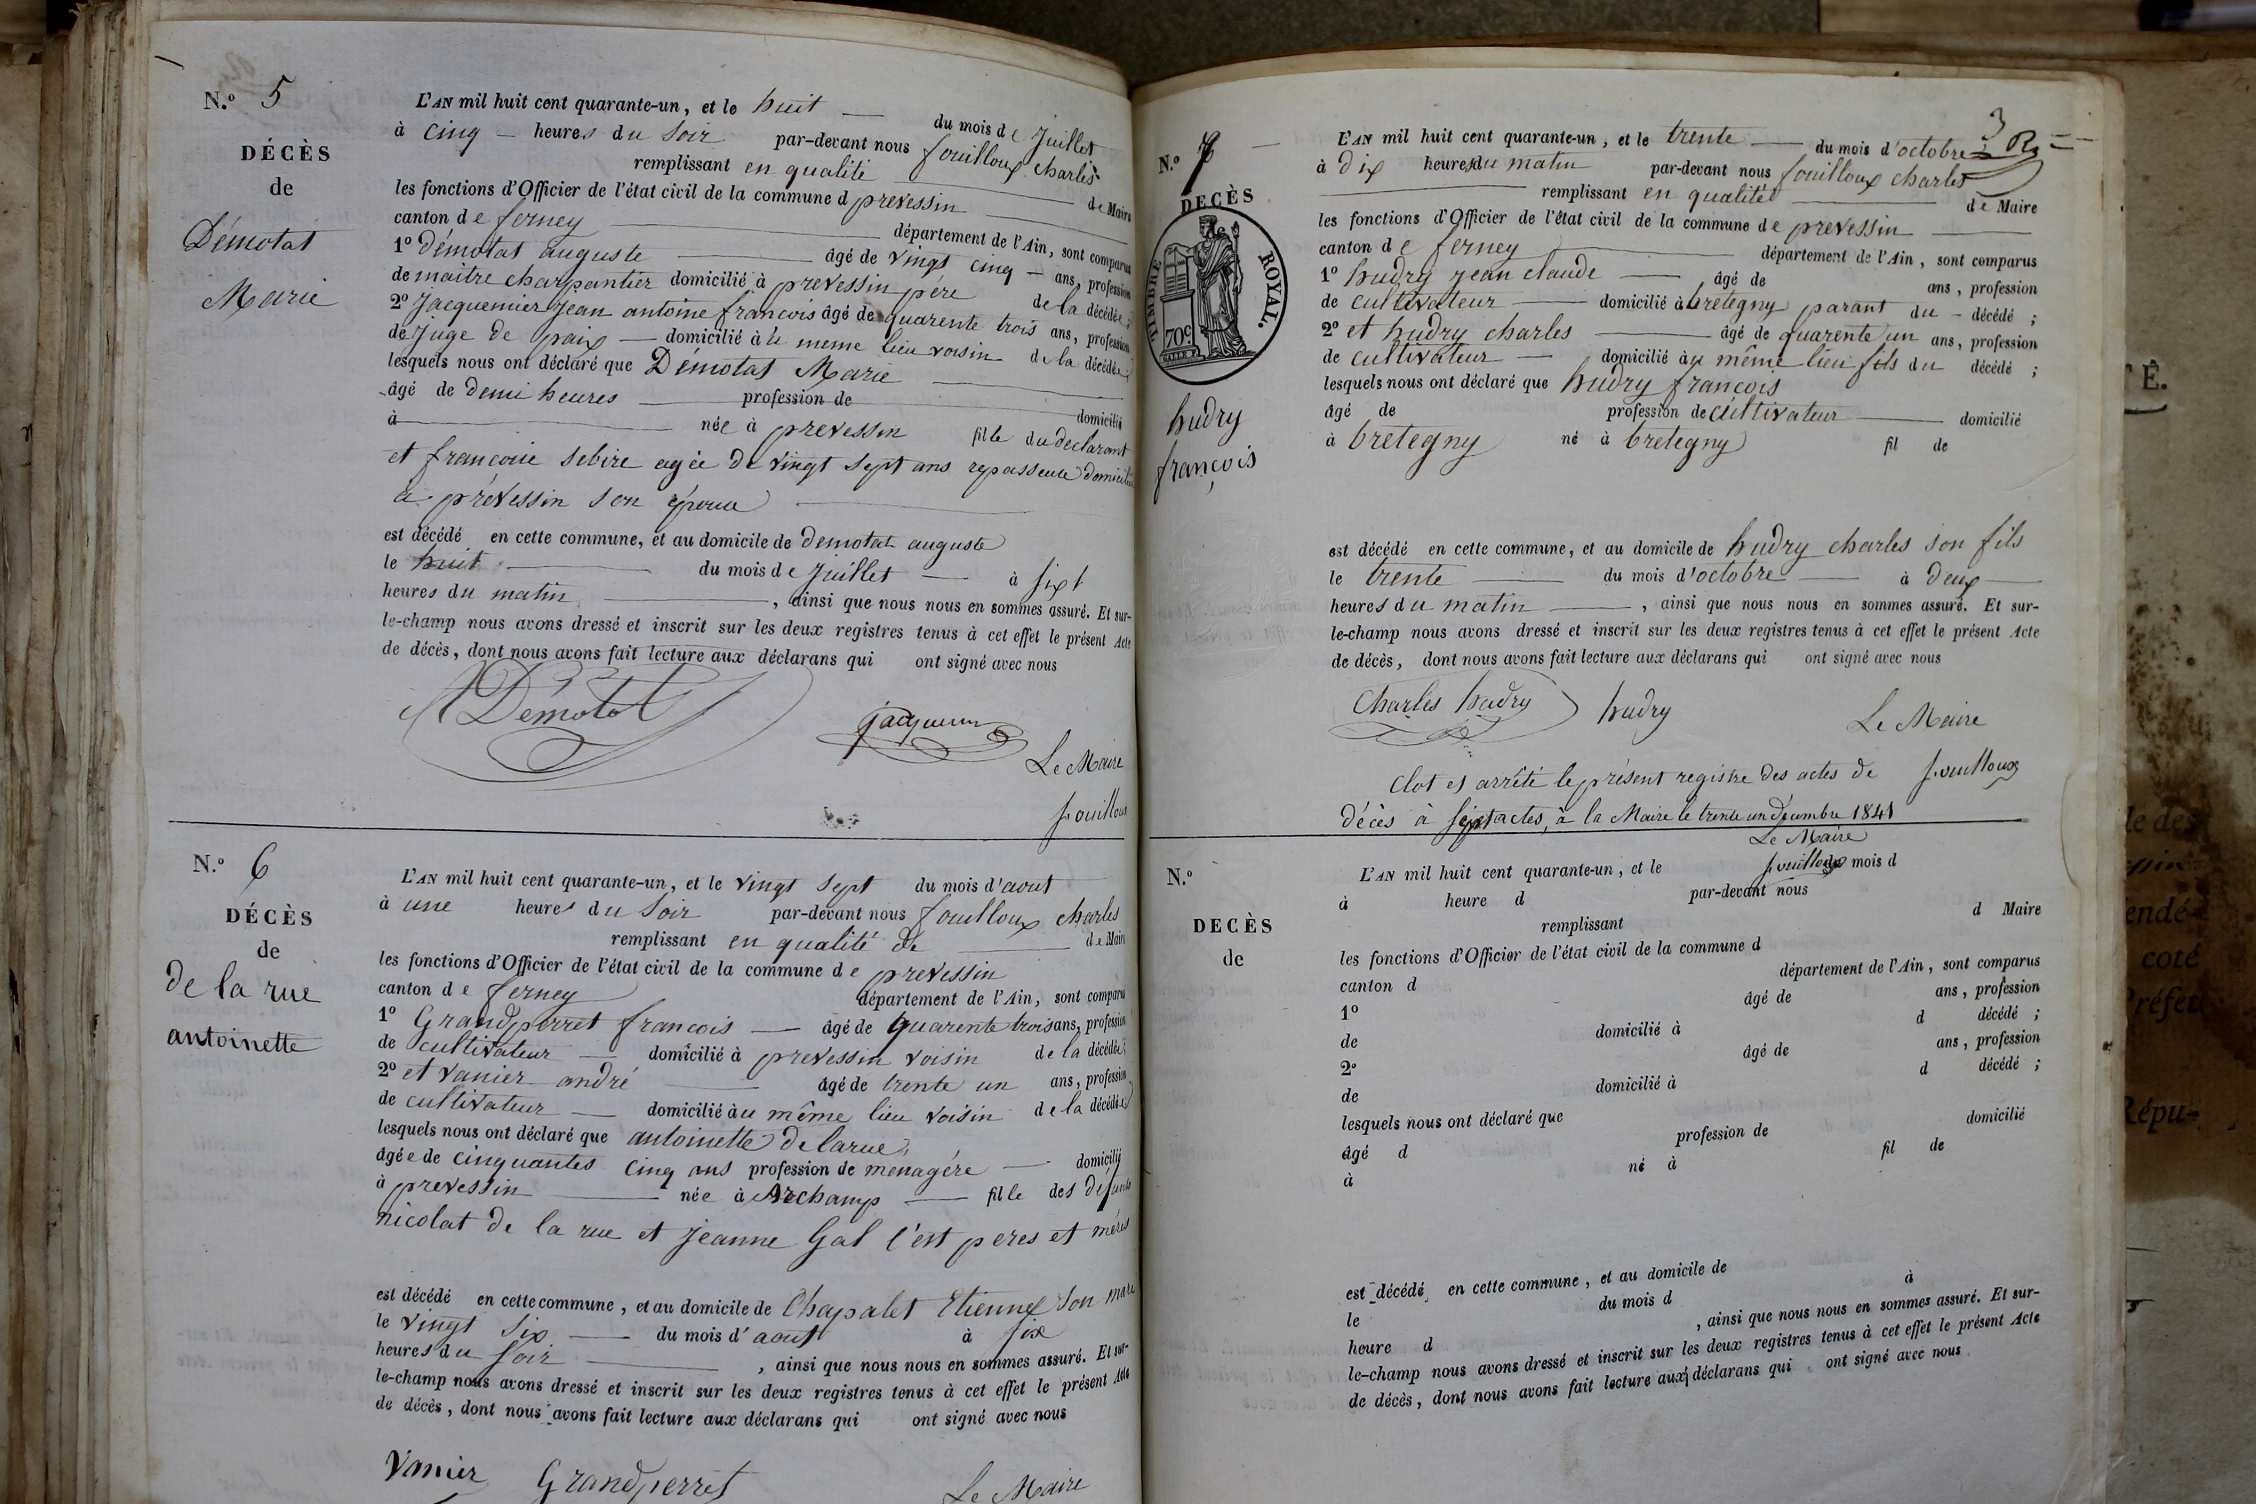 N.º 5
DÉCÈS
de
Démotat
Marie
L'AN mil huit cent quarante-un, et le huit du mois de Juillet
à cinq heures du Soir par-devant nous fouilloux charles
remplissant en qualité de Maire
les fonctions d'Officier de l'état civil de la commune d prevessin
canton de ferney département de l'Ain, sont comparus
1º démotat auguste âgé de vingt cinq ans, profession
de maitre charpantier domicilié à prevessin pére de la décédée ;
2º Jacquemier Jean antoine francois âgé de quarente trois ans, profession
de Juge de paix domicilié à le meme lieu voisin de la décédée ;
lesquels nous ont déclaré que Démotat Marie
âgé de demi heures profession de domicilié
à née à prevessin fille du declarant
et francoise sebire agée de vingt sept ans repasseuse domicilié
à prévessin son épouse
est décédé en cette commune, et au domicile de demotat auguste
le huit du mois de Juillet à sixt
heures du matin , ainsi que nous nous en sommes assuré. Et sur-
le-champ nous avons dressé et inscrit sur les deux registres tenus à cet effet le présent Acte
de décès, dont nous avons fait lecture aux déclarans qui ont signé avec nous
A Démotat
jacquemier
Le Maire
fouilloux
N.º 6
DÉCÈS
de
de la rue
antoinette
L'AN mil huit cent quarante-un, et le vingt sept du mois d'aout
à une heures du Soir par-devant nous fouilloux charles
remplissant en qualité de de Maire
les fonctions d'Officier de l'état civil de la commune de prevessin
canton de ferney département de l'Ain, sont comparus
1º Grandperret francois âgé de quarente trois ans, profession
de cultivateur domicilié à prevessin voisin de la décédée ;
2º et vanier andré âgé de trente un ans, profession
de cultivateur domicilié au même lieu voisin de la décédée
lesquels nous ont déclaré que antoinette de larue,
âgée de cinquantes cinq ans profession de menagére domicilié
à prevessin née à Archamp fille des défunts
nicolat de la rue et jeanne Gal c'est peres et méres
est décédé en cette commune, et au domicile de Chapalet Etienne son mari
le vingt six du mois d'aout à six
heures du Soir , ainsi que nous nous en sommes assuré. Et sur-
le-champ nous avons dressé et inscrit sur les deux registres tenus à cet effet le présent Acte
de décès, dont nous avons fait lecture aux déclarans qui ont signé avec nous
Vanier Grandperret Le Maire
3
N.º 7
DECÈS
TIMBRE ROYAL.
70c.
hudry
françois
L'AN mil huit cent quarante-un, et le trente du mois d'octobre
à dix heures du matin par-devant nous fouilloux charles
remplissant en qualité de Maire
les fonctions d'Officier de l'état civil de la commune de prevessin
canton de ferney département de l'Ain, sont comparus
1º hudry jean claude âgé de ans, profession
de cultivateur domicilié à bretegny parant du décédé ;
2º et hudry charles âgé de quarente un ans, profession
de cultivateur domicilié au même lieu fils du décédé ;
lesquels nous ont déclaré que hudry francois
âgé de profession de cultivateur domicilié
à bretegny né à bretegny fil de
est décédé en cette commune, et au domicile de hudry charles son fils
le trente du mois d'octobre à deux
heures du matin , ainsi que nous nous en sommes assuré. Et sur-
le-champ nous avons dressé et inscrit sur les deux registres tenus à cet effet le présent Acte
de décès, dont nous avons fait lecture aux déclarans qui ont signé avec nous
Charles hudry hudry Le Maire
fouilloux
Clot et arrêté le présent registre des actes de
décès à sept actes, à la Maire le trente un décembre 1841
Le Maire
fouilloux
N.º
DECÈS
de
L'AN mil huit cent quarante-un, et le du mois d
à heure d par-devant nous
remplissant d Maire
les fonctions d'Officier de l'état civil de la commune d
canton d département de l'Ain, sont comparus
1º âgé de ans, profession
de domicilié à d décédé ;
2º âgé de ans, profession
de domicilié à d décédé ;
lesquels nous ont déclaré que
âgé d profession de domicilié
à né à fil de
est décédé en cette commune, et au domicile de
le du mois d à
heure d , ainsi que nous nous en sommes assuré. Et sur-
le-champ nous avons dressé et inscrit sur les deux registres tenus à cet effet le présent Acte
de décès, dont nous avons fait lecture aux déclarans qui ont signé avec nous